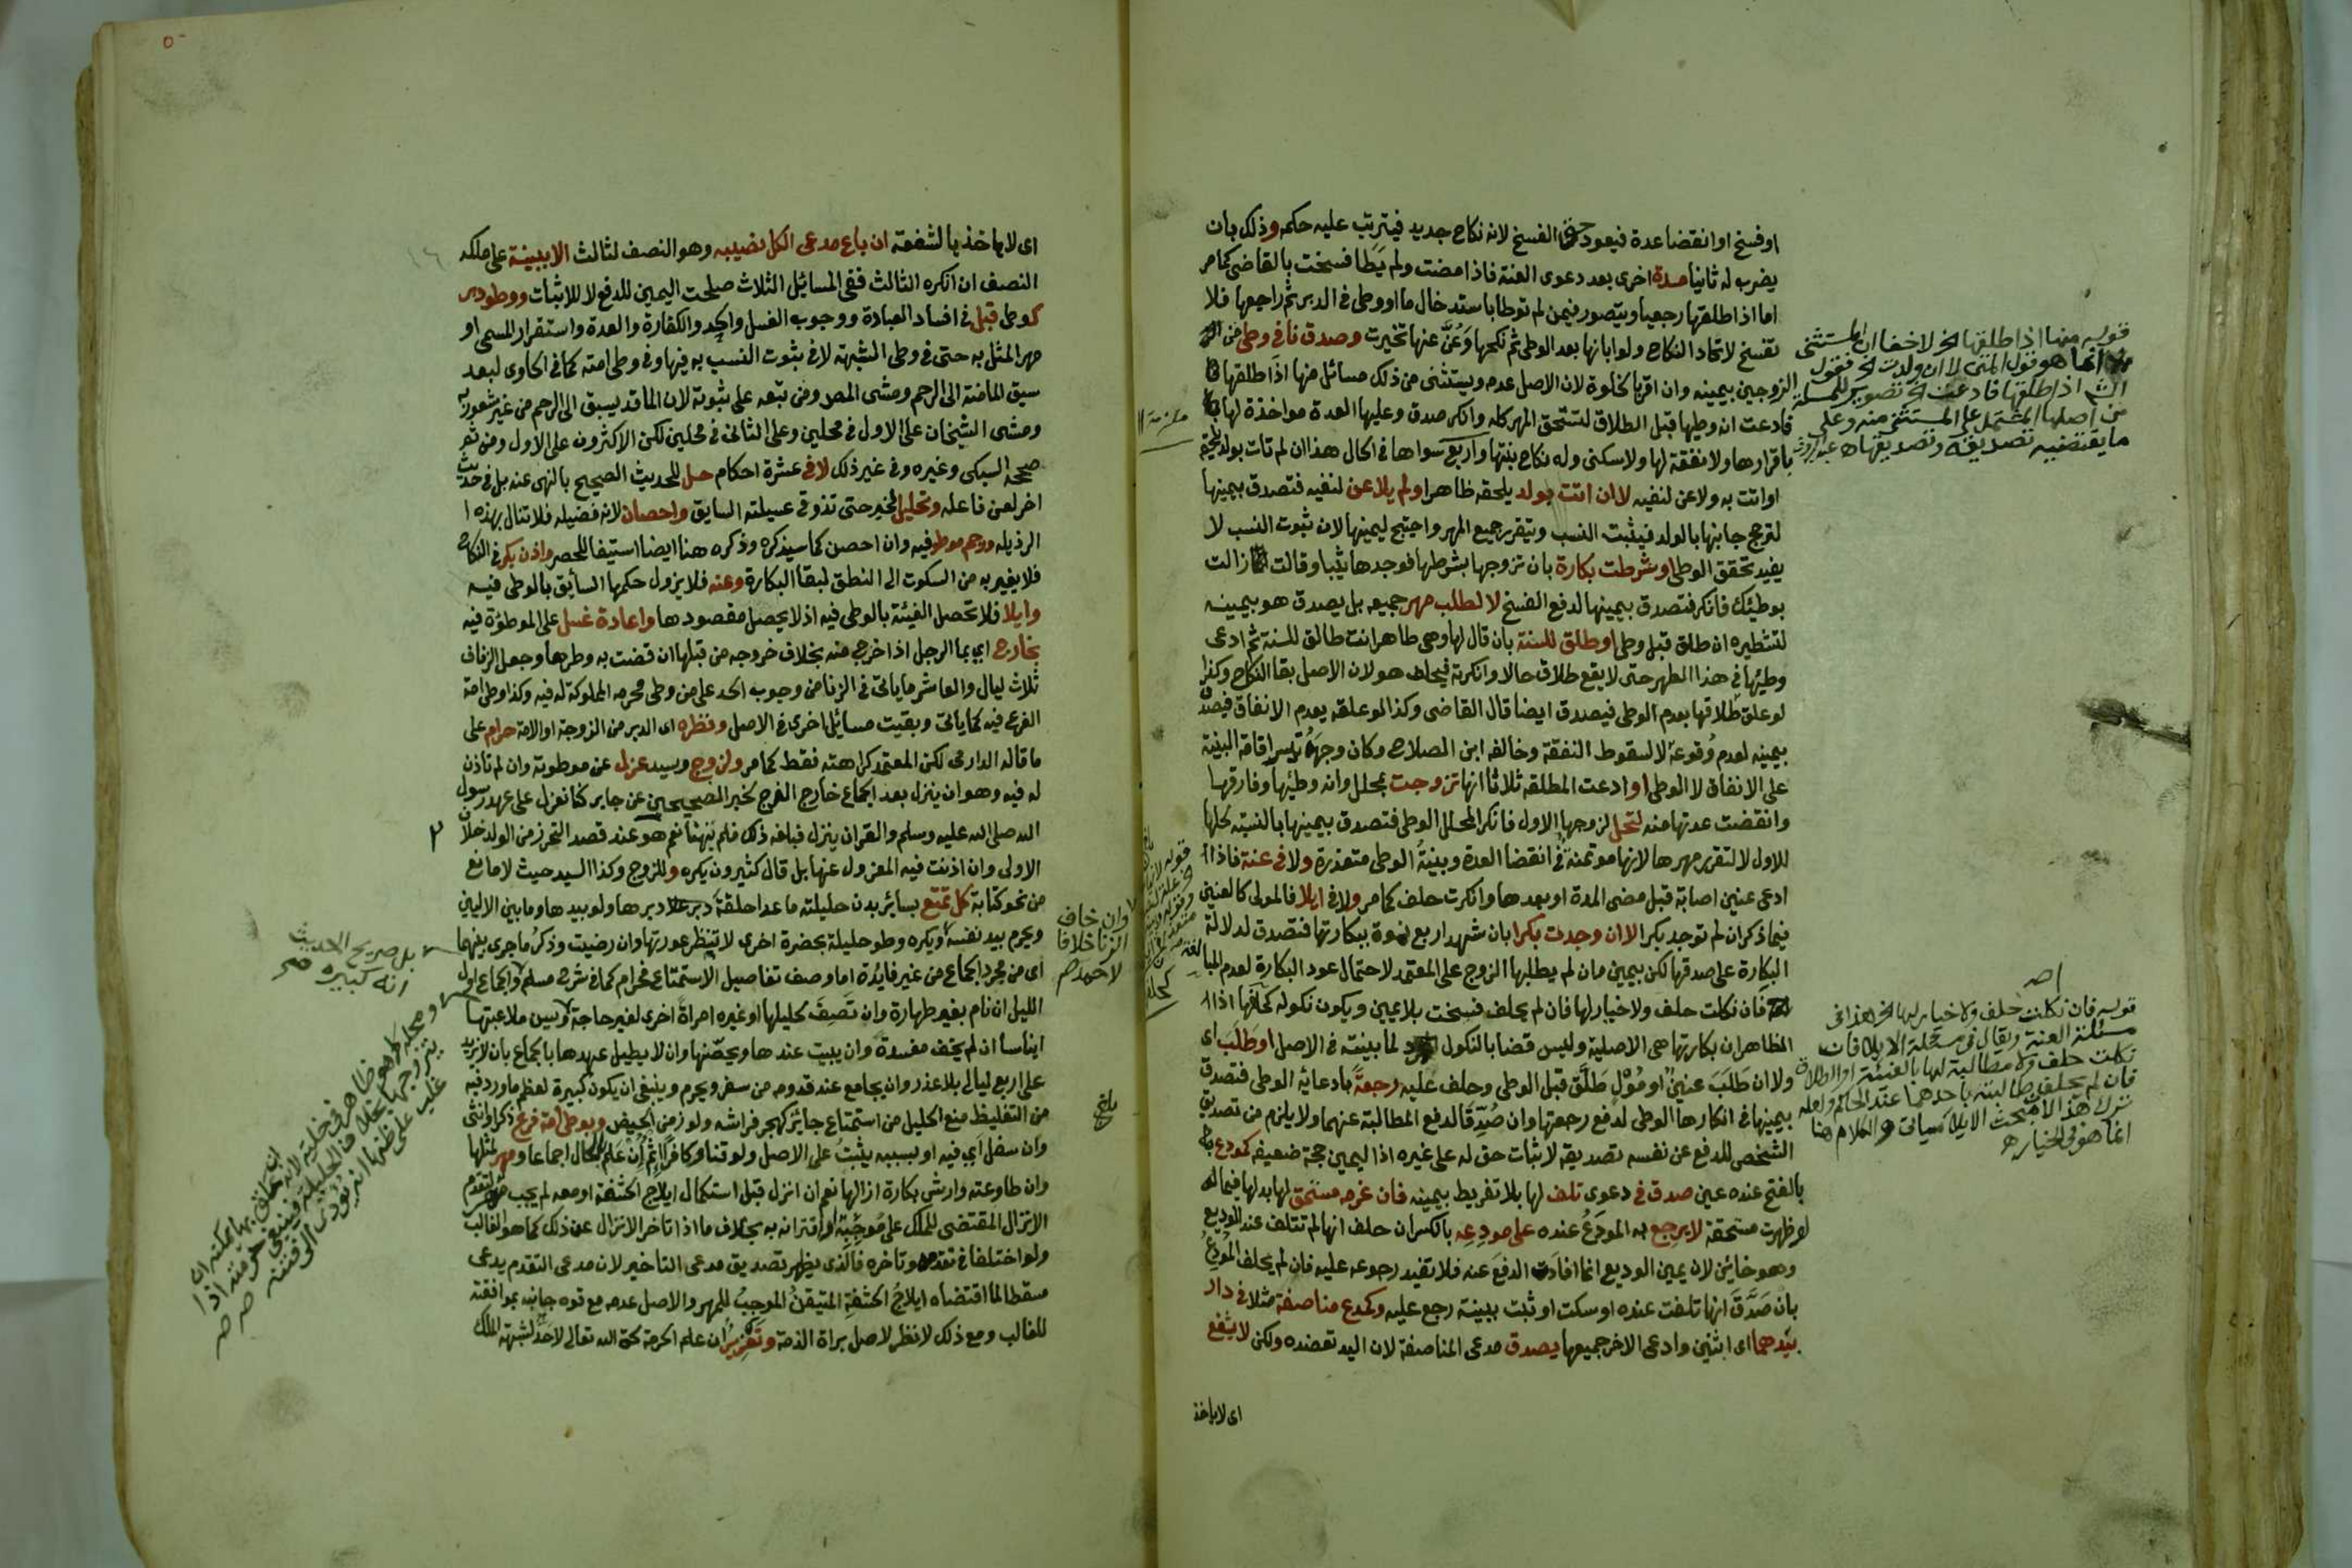 او فسخ او انقضا عدة فيعود حق الفسخ لانه نكاح جديد فيترتب عليه حكمه وذلك بان
يضرب له ثانيا مدة اخرى بعد دعوى العنة فاذا مضت ولم يطا فسخت بالقاضى كما مر
اما اذا طلقها رجعيا ويتصور فيمن لم توطا باستدخال ما او وطى فى الدبر ثم راجعها فلا
تفسخ لاتحاد النكاح ولو ابانها بعد الوطى ثم نكحها وعُنَّ عنها تخيرت وصدق نافى وطى من
الزوجين بيمينه وان اقر بالخلوة لان الاصل عدمه ويستثنى من ذلك مسائل منها اذا طلقها
فادعت ان وطيها قبل الطلاق لتستحق المهر كله وانكر صدق وعليها العدة مواخذة لها
باقرارها ولا نفقة لها ولا سكنى وله نكاح بنتها واربع سواها فى الحال هذا ان لم تات بولد
او اتت به ولاعن لنفيه لا ان اتت بولد يلحقه ظاهرا ولم يلاعن لنفيه فتصدق بيمينها
لترجح جانبها بالولد فيثبت النسب ويتقرر جميع المهر واحتيج ليمينها لان ثبوت النسب لا
يفيد تحقق الوطى او شرطت بكارة بان تزوجها بشرطها فوجدها ثيبا وقالت زالت
بوطيك فانكر فتصدق بيمينها لدفع الفسخ لا لطلب مهر جميعه بل يصدق هو بيمينه
لتشطيره ان طلق قبل وطى او طلق للسنة بان قال لها وهى طاهر انت طالق للسنة ثم ادعى
وطيها فى هذا الطهر حتى لا يقع طلاق حالا وانكرته فيحلف هو لان الاصل بقا النكاح وكذا
لو علق طلاقها بعدم الوطى فيصدق ايضا قال القاضى وكذا لو علقه بعدم الانفاق فيصدق
بيمينه لعدم وُقوعه لا لسقوط النفقة وخالفه ابن الصلاح وكان وجهه تيسر اقامة البينة
على الانفاق لا الوطى او ادعت المطلقه ثلاثا انها تزوجت بمحلل وانه وطيها وفارقها
وانقضت عدتها منه لتحل لزوجها الاول فانكر المحلل الوطى فتصدق بيمينها بالنسبة لحلها
للاول لا لتقرير مهرها لانها موتمنة فى انقضا العدة وبينةُ الوطى متعذرة ولا فى عنة فاذا
ادعى عنين اصابة قبل مضى المدة او بعدها وانكرت حلف كما مر ولا فى ايلا فالمولى كالعنين
فيما ذكر ان لم توجد بكرا الا ان وجدت بكرا بان شهد اربع نسوة ببكارتها فتصدق لدلالة
البكارة على صدقها لكن بيمين مان لم يطلبها الزوج على المعتمد لاحتمال عود البكارة لعدم المبالغة
فان نكلت حلف ولا خيار لها فان لم يحلف فسخت بلا يمين ويكون نكوله كحلفها اذ
الظاهر ان بكارتها هى الاصلية وليس قضا بالنكول لما بينته فى الاصل او طَلَب اى
ولا ان طَلَبَ عنينٌ او مُوْلٍ طَلَّق قبل الوطى وحلف عليه رجعةً بادعائه الوطى فتصدق
بيمينها فى انكارها الوطى لدفع رجعتها وان صُدِّقَا لدفع المطالبة عنهما ولا يلزم من تصديق
الشخص للدفع عن نفسه تصديقه لاثبات حق له على غيره اذ اليمين حجة ضعيفه كمودع
بالفتح عنده عين صدق فى دعوى تلف لها بلا تفريط بيمينه فان غرمه مستحق لها بدلها فيما
لو ظهرت مستحقة لا يرجع به المودَعُ عنده على مودِعِه بالكسر ان حلف انها لم تتلف عند الوديع
وهو خائن لان يمين الوديع انما افادت الدفع عنه فلا تفيد رجوعه عليه فان لم يحلف المُودِعُ
بان صَدَّقَ انها تلفت عنده او سكت او ثبت ببينة رجع عليه وكمدع مناصفة مثلا فى دار
بيَدهما اى اثنين وادعى الاخر جميعها يصدق مدعى المناصفة لان اليد تعضده ولكن لا يشفع
اى لا ياخذ
قوله منها اذا طلقها الخ لا خفا ان المستثنى
انما هو قول المتن لا ان ولدت الخ فقول
الش اذا طلقها فادعت الخ تصوير للمسئلة
من اصلها المشتمل على المستثنى منه وعلى
ما يقتضيه تصديقه وتصديقها اه
قوله فان نكلت حلف ولا خيار لها الخ هذا فى
مسئلة العنة ويقال فى مسئلة الايلا فان
نكلت حلف ولا مطالبة لها بالفيئة او الطلاق
فان لم يحلف طالبته باحدهما عند الحاكم ولعله
ترك هذا لان بحث الايلا سياتى والكلام هنا
انما هو فى الخيار اه
اى لا ياخذ بالشفعة ان باع مدعى الكل نصيبه وهو النصف لثالث الا ببينة على ملكه
النصف ان انكره الثالث ففى المسائل الثلاث صلحت اليمين للدفع لا للاثبات ووطو دبر
كوطى قبل فى افساد العبادة ووجوب الغسل والحد والكفارة والعدة واستقرار المسمى او
مهر المثل به حتى فى وطى الشبهة لا فى ثبوت النسب به فيها وفى وطى امته كما فى الحاوى لبعد
سبق الما منه الى الرحم ومشى المص ومن تبعه على ثبوته لان الما قد يسبق الى الرحم من غير شعور به
ومشى الشيخان على الاول فى محلين وعلى الثانى فى محلين لكن الاكثرون على الاول ومن ثم
صححه السبكى وغيره وفى غير ذلك لا فى عشرة احكام حل للحديث الصحيح بالنهى عنه بل فى حديث
اخر لعن فاعله وتحليل لخبر حتى تذوقى عسيلته السابق واحصان لانه فضيله فلا تنال بهذه
الرذيله ورجم موطو فيه وان احصن كما سيذكره وذكره هنا ايضا استيفا للحصر واذن بكر فى النكاح
فلا يغير به من السكوت الى النطق لبقا البكارة وعنه فلا يزول حكمها السابق بالوطى فيه
وايلا فلا تحصل الفيئة بالوطى فيه اذ لا يحصل مقصودها واعادة غسل على الموطؤة فيه
بخارج اى بما الرجل اذا خرج منه بخلاف خروجه من قبلها ان قضت به وطرها وجعل الزفاف
ثلاث ليال والعاشر ما ياتى فى الزنا من وجوب الحد على من وطى محرمه المملوكة له فيه وكذا وطى امة
الفرع فيه كما ياتى وبقيت مسائل اخرى فى الاصل ونظره اى الدبر من الزوجة او الامة حرام على
ما قاله الدارمى لكن المعتمد كراهته فقط كما مر ولزوج وسيد عزل عن موطوته وان لم تاذن
له فيه وهو ان ينزل بعد الجماع خارج الفرج لخبر الصحيحين عن جابر كنا نعزل على عهد رسول
الله صلى الله عليه وسلم والقران ينزل فبلغه ذلك فلم ينهنا نعم هو عند قصد التحرز من الولد خلاف
الاولى وان اذنت فيه المعزول عنها بل قال كثيرون يكره وللزوج وكذا السيد حيث لا مانع
من نحو كتابة كل تمتع بسائر بدن حليلته ما عدا حلقة دبرها ولو بيدها وما بين الاليين
ويحرم بيد نفسه ويكره وطو حليلة بحضرة اخرى لا تنظر عورتها وان رضيت وذكرُ ما جرى بينهما
اى من مجرد الجماع من غير فايدة اما وصف تفاصيل الاستمتاع فحرام كما فى شرح مسلم والجماع اول
الليل ان نام بغير طهارة وان تَصِفَ لحليلها او غيره امراةً اخرى لغير حاجة ويسن ملاعبتها
ايناسا ان لم يخف مفسدة وان يبيت عندها ويحصّنها وان لا يطيل عهدها بالجماع بان لا يزيد
على اربع ليالى بلا عذر وان يجامع عند قدومه من سفر ويحرم وينبغى ان يكون كبيرة لعظم ما ورد فيه
من التغليظ منع الحليل من استمتاع جائز كهجر فراشه ولو زمن الحيض وبوطى امة فرع ذكرا وانثى
وان سفل اى فيه او بسببه يثبتُ على الاصل ولو قنا وكافرا اثم ان علم الحال اجماعا ومهر لمثلها
وان طاوعته وارش بكارة ازالها نعم ان انزل قبل استكمال ايلاج الحشفة او معه لم يجب مهر لتقدم
الانزال المقتضى للملك على مُوجَبِه او اقترانه به بخلاف ما اذا تاخر الانزال عن ذلك كما هو الغالب
ولو اختلفا فى تقدمه وتاخره فالذى يظهر تصديق مدعى التاخير لان مدعى التقدم يدعى
مسقطا لما اقتضاه ايلاجُ الحشفةِ المتيقنُ الموجبُ للمهر والاصل عدمه مع قوه جانبه بموافقته
للغالب ومع ذلك لا نظر لاصل براة الذمة وتعزيرٌ ان علم الحرمة لحق الله تعالى لا حدٌّ لشبهة الملك
وان خاف
الزنا خلافا
لاحمد
بلغ
بل صريح الاحاديث
انه كبيره